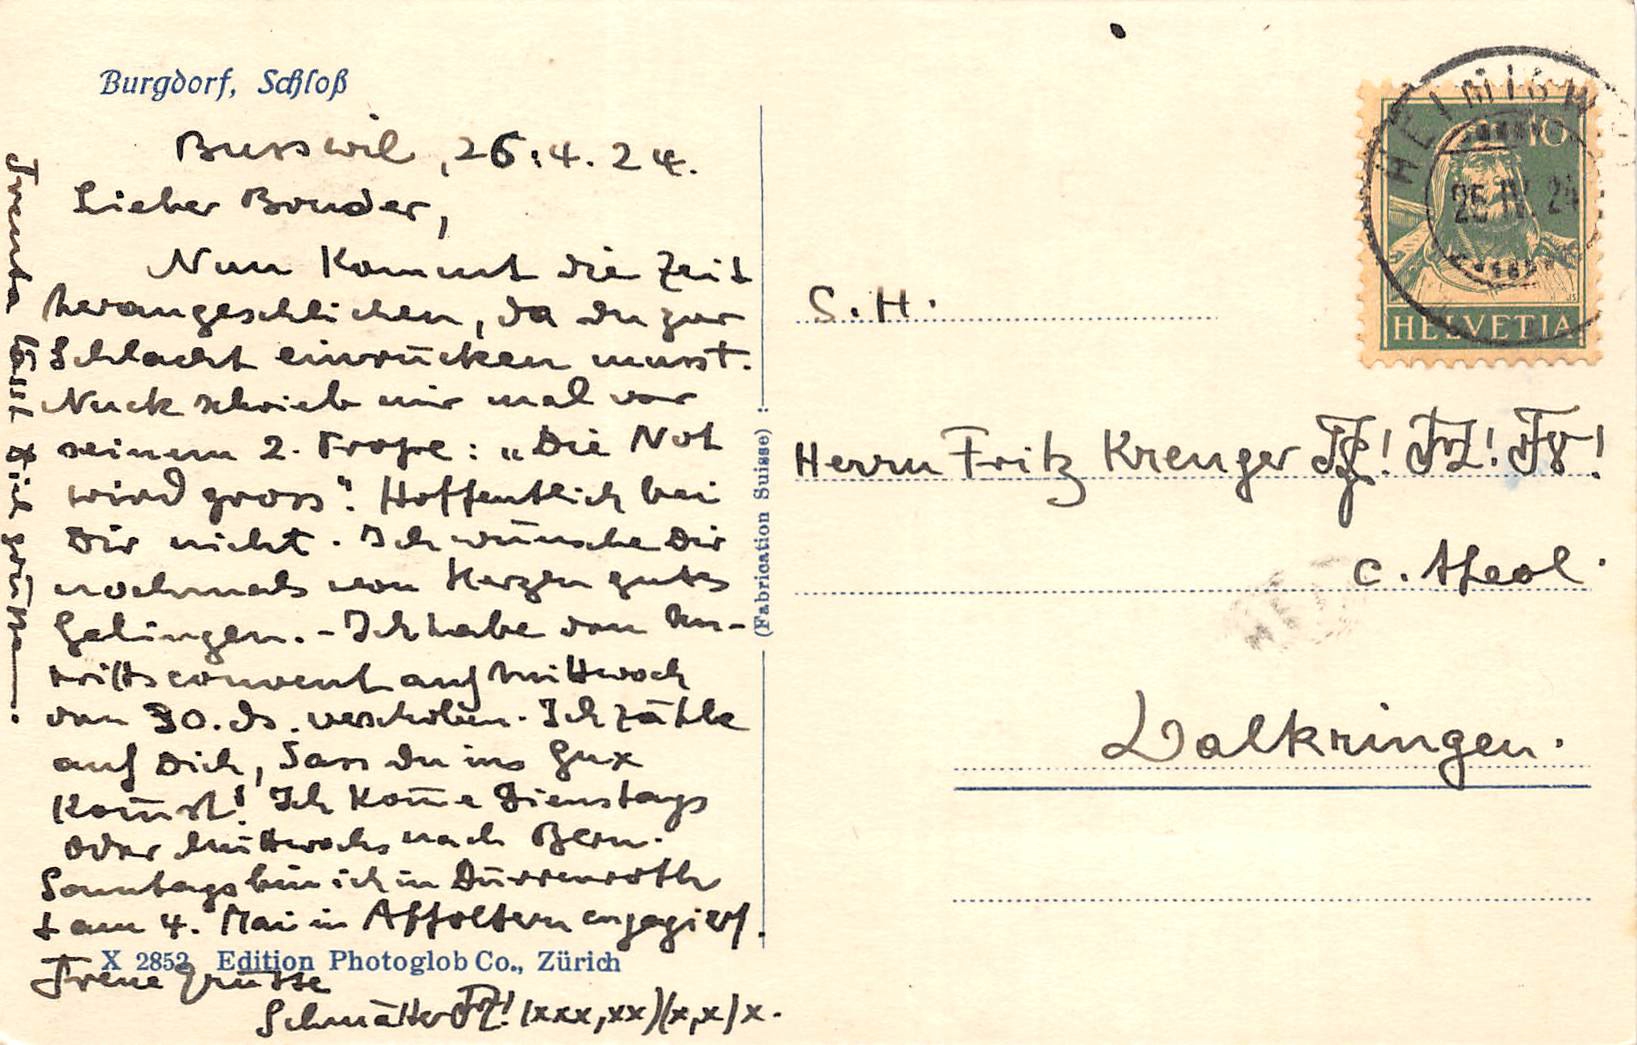 Burgdorf, Schloß
Busswil, 26.4.24.
Lieber Bruder,
Nun kommt die Zeit
herangeschlichen, da du zur
Schlacht einrücken musst.
Nuck schrieb mir mal vor
seinem 2. Prope: „Die Not
wird gross". Hoffentlich bei
Dir nicht. Ich wünsche Dir
nochmals von Herzen gutes
Gelingen. - Ich habe den An-
trittsconvent auf Mittwoch
den 30. ds. verschoben. Ich zähle
auf Dich, dass du ins Gux
kom̄st! Ich kom̄e Dienstags
oder Mittwochs nach Bern.
Sonntags bin ich in Dürrenroth
+ am 4. Mai in Affoltern engagiert.
Treue Grüsse
Schmätter (xxx,xx)(x,x)x.
lässt Dich grüssen.
X 2852 Edition Photoglob Co., Zürich
(Fabrication Suisse)
HEIMISW
26 IV 24
10
HELVETIA
S. H.
Herrn Fritz Krenger
c. theol.
Walkringen.